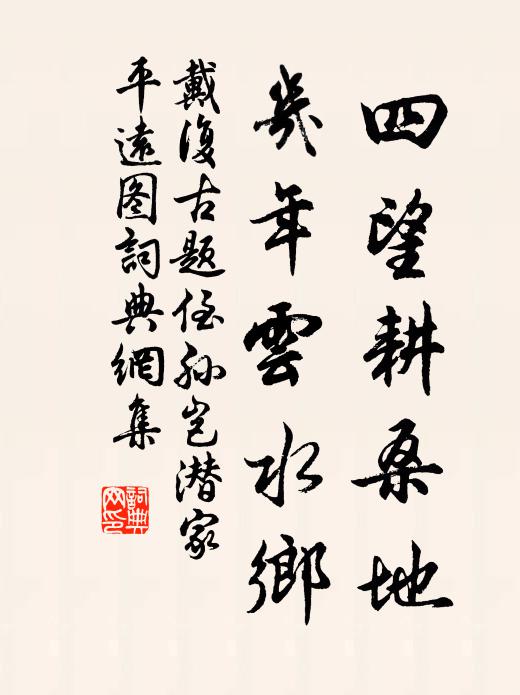 四望耕桑地
幾年雲水鄉
戴復古題侄孫豈潜家
平遠圖詞典網集
詞典
网印